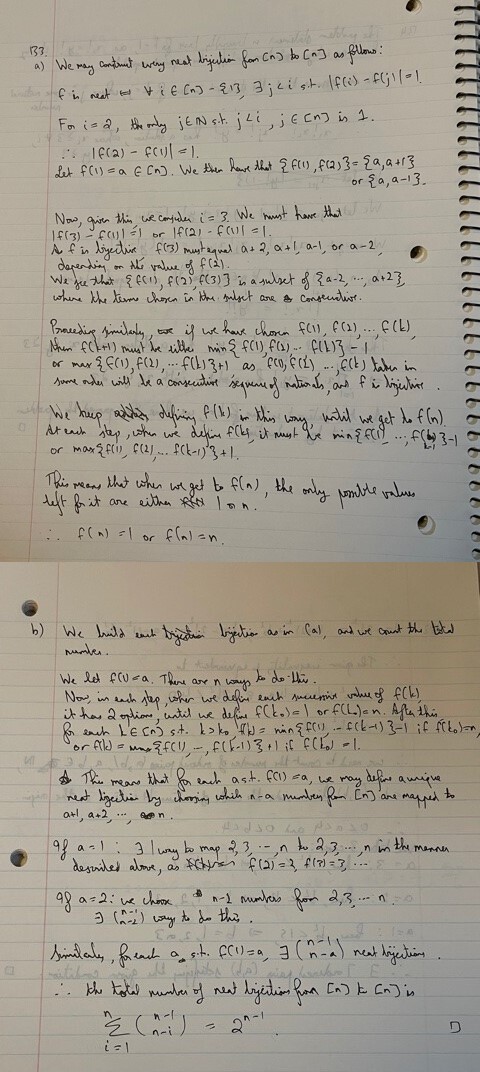 B3.
a) We may construct every neat bijection from [n] to [n] as follows:
f is neat ⟺ ∀ i ∈ [n] - {1}, ∃ j < i s.t. |f(i) - f(j)| = 1.
For i = 2, the only j ∈ ℕ s.t. j < i, j ∈ [n] is 1.
∴ |f(2) - f(1)| = 1.
Let f(1) = a ∈ [n]. We then have that {f(1), f(2)} = {a, a+1}
or {a, a-1}.
Now, given this we consider i = 3. We must have that
|f(3) - f(1)| = 1 or |f(2) - f(1)| = 1.
As f is bijective f(3) must equal a+2, a+1, a-1, or a-2,
depending on the value of f(2).
We see that {f(1), f(2), f(3)} is a subset of {a-2, ..., a+2},
where the terms chosen in the subset are consecutive.
Proceeding similarly, if we have chosen f(1), f(2), ..., f(k),
then f(k+1) must be either min{f(1), f(2) ... f(k)} - 1
or max{f(1), f(2), ... f(k)} + 1 as f(1), f(2), ... f(k) taken in
some order will be a consecutive sequence of naturals, and f is bijective.
We keep defining f(k) in this way, until we get to f(n)
At each step, when we define f(k), it must be min{f(1), ..., f(k-1)} - 1
or max{f(1), f(2), ... f(k-1)} + 1.
This means that when we get to f(n), the only possible values
left for it are either 1 or n.
∴ f(n) = 1 or f(n) = n.
b) We build each bijection as in (a), and we count the total
number.
We let f(1) = a. There are n ways to do this.
Now, in each step, when we define each successive value of f(k)
it has 2 options, until we define f(k₀) = 1 or f(k₀) = n. After this
for each k ∈ [n] s.t. k > k₀, f(k) = min{f(1), - f(k-1)} - 1 if f(k₀) = n,
or f(k) = max{f(1), -, f(k-1)} + 1 if f(k₀) = 1.
This means that for each a s.t. f(1) = a, we may define a unique
neat bijection by choosing which n-a numbers from [n] are mapped to
a+1, a+2, ..., n.
If a = 1: ∃ 1 way to map 2, 3, ..., n to 2, 3, ..., n in the manner
described above, as f(2) = 2, f(3) = 3, ...
If a = 2: we choose n-2 numbers from 2, 3, ... n.
∃ (n-1 n-2) way to do this.
Similarly, for each a s.t. f(1) = a, ∃ (n-1 n-a) neat bijections.
∴ the total number of neat bijections from [n] to [n] is
n∑i=1 (n-1 n-i) = 2ⁿ⁻¹. □